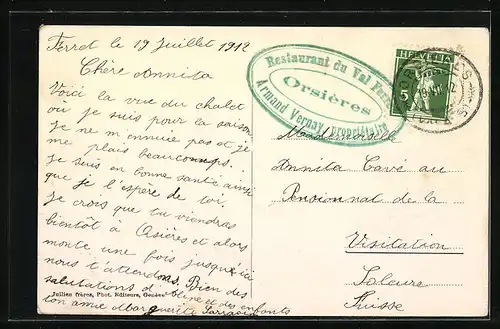 Ferret le 19 Juillet 1912
Chère Annita
Voici la vue du chalet
où je suis pour la saison
Je ne m'ennuie pas et je
me plais beaucoups.
Je suis en bonne santé ainsi
que je l'espère de toi.
Je crois que tu viendras
bientôt à Orsières et alors
monte une fois jusqu'ici
nous t'attendons. Bien des
salutations d'Aline et des enfants
ton amie Marguerite
Jullien frères, Phot. Editeurs, Genève
Restaurant du Val Ferret
Orsières
Armand Vernay, propriétaire
HELVETIA
5
ORSIÈRES
Mademoiselle
Annita Cave au
Pensionnat de la
Visitation
Soleure
Suisse